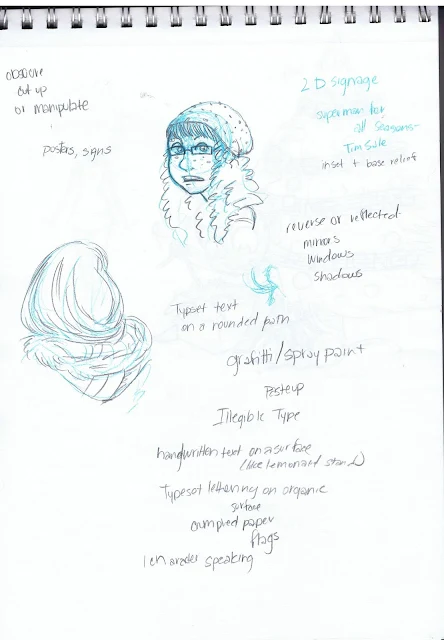 obscure
cut up
or manipulate
posters, signs
2D signage
superman for
all seasons-
Tim Sale
inset + base relief
reverse or reflected
mirrors
windows
shadows
Typset text
on a rounded path
grafitti/spray paint
Pasteup
Illegible Type
handwritten text on a surface
(like lemonaid stand)
Typeset lettering on organic
surface
crumpled paper
flags
1 character speaking